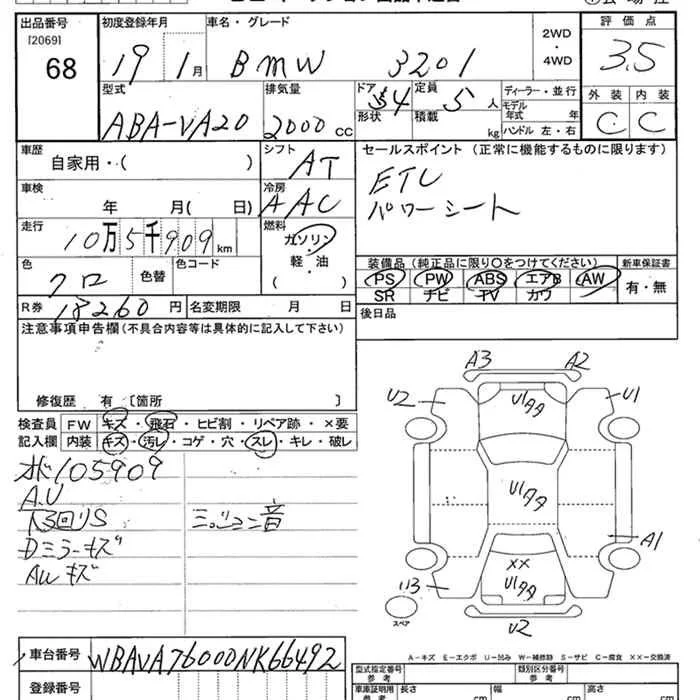 出品番号 初度登録年月 車名・グレード 評価点
[2069]
68 19 1月 BMW 320i 2WD・4WD 3.5
型式 排気量 ドア 4 定員 5人 ディーラー・並行 外装 内装
ABA-VA20 2000cc 形状 積載 kg モデル年式 年 C C
ハンドル 左・右
車歴 シフト セールスポイント(正常に機能するものに限ります)
自家用・( ) AT ETC
車検 冷房 パワーシート
年 月( 日) AAC
走行 燃料
10万5千909km ガソリン
装備品(純正品に限り○をつけてください) 新車保証書
色 色替 色コード 軽・油
クロ ( )
PS PW ABS エアB AW 有・無
SR ナビ TV カワ
R券 18260円 名変期限 月 日
後日品
注意事項申告欄(不具合内容等は具体的に記入して下さい)
修復歴 有〔箇所 〕
検査員 FW キズ・飛石・ヒビ割・リペア跡・×要
記入欄 内装 キズ・汚レ・コゲ・穴・スレ・キレ・破レ
A3 A2
U2 U1
U1タタ
U1タタ
A1
XX
U1タタ
U3
U2
スペア
105909
A.U
ミッション音
Dミラーキズ
AWキズ
A-キズ E-エクボ U-凹み W-補修跡 S-サビ C-腐食 XX-交換済
車台番号 WBAVA76000NK66492
登録番号
型式指定番号 参考 類別区分番号 参考
車庫証明用 参考 長さ cm 幅 cm 高さ cm